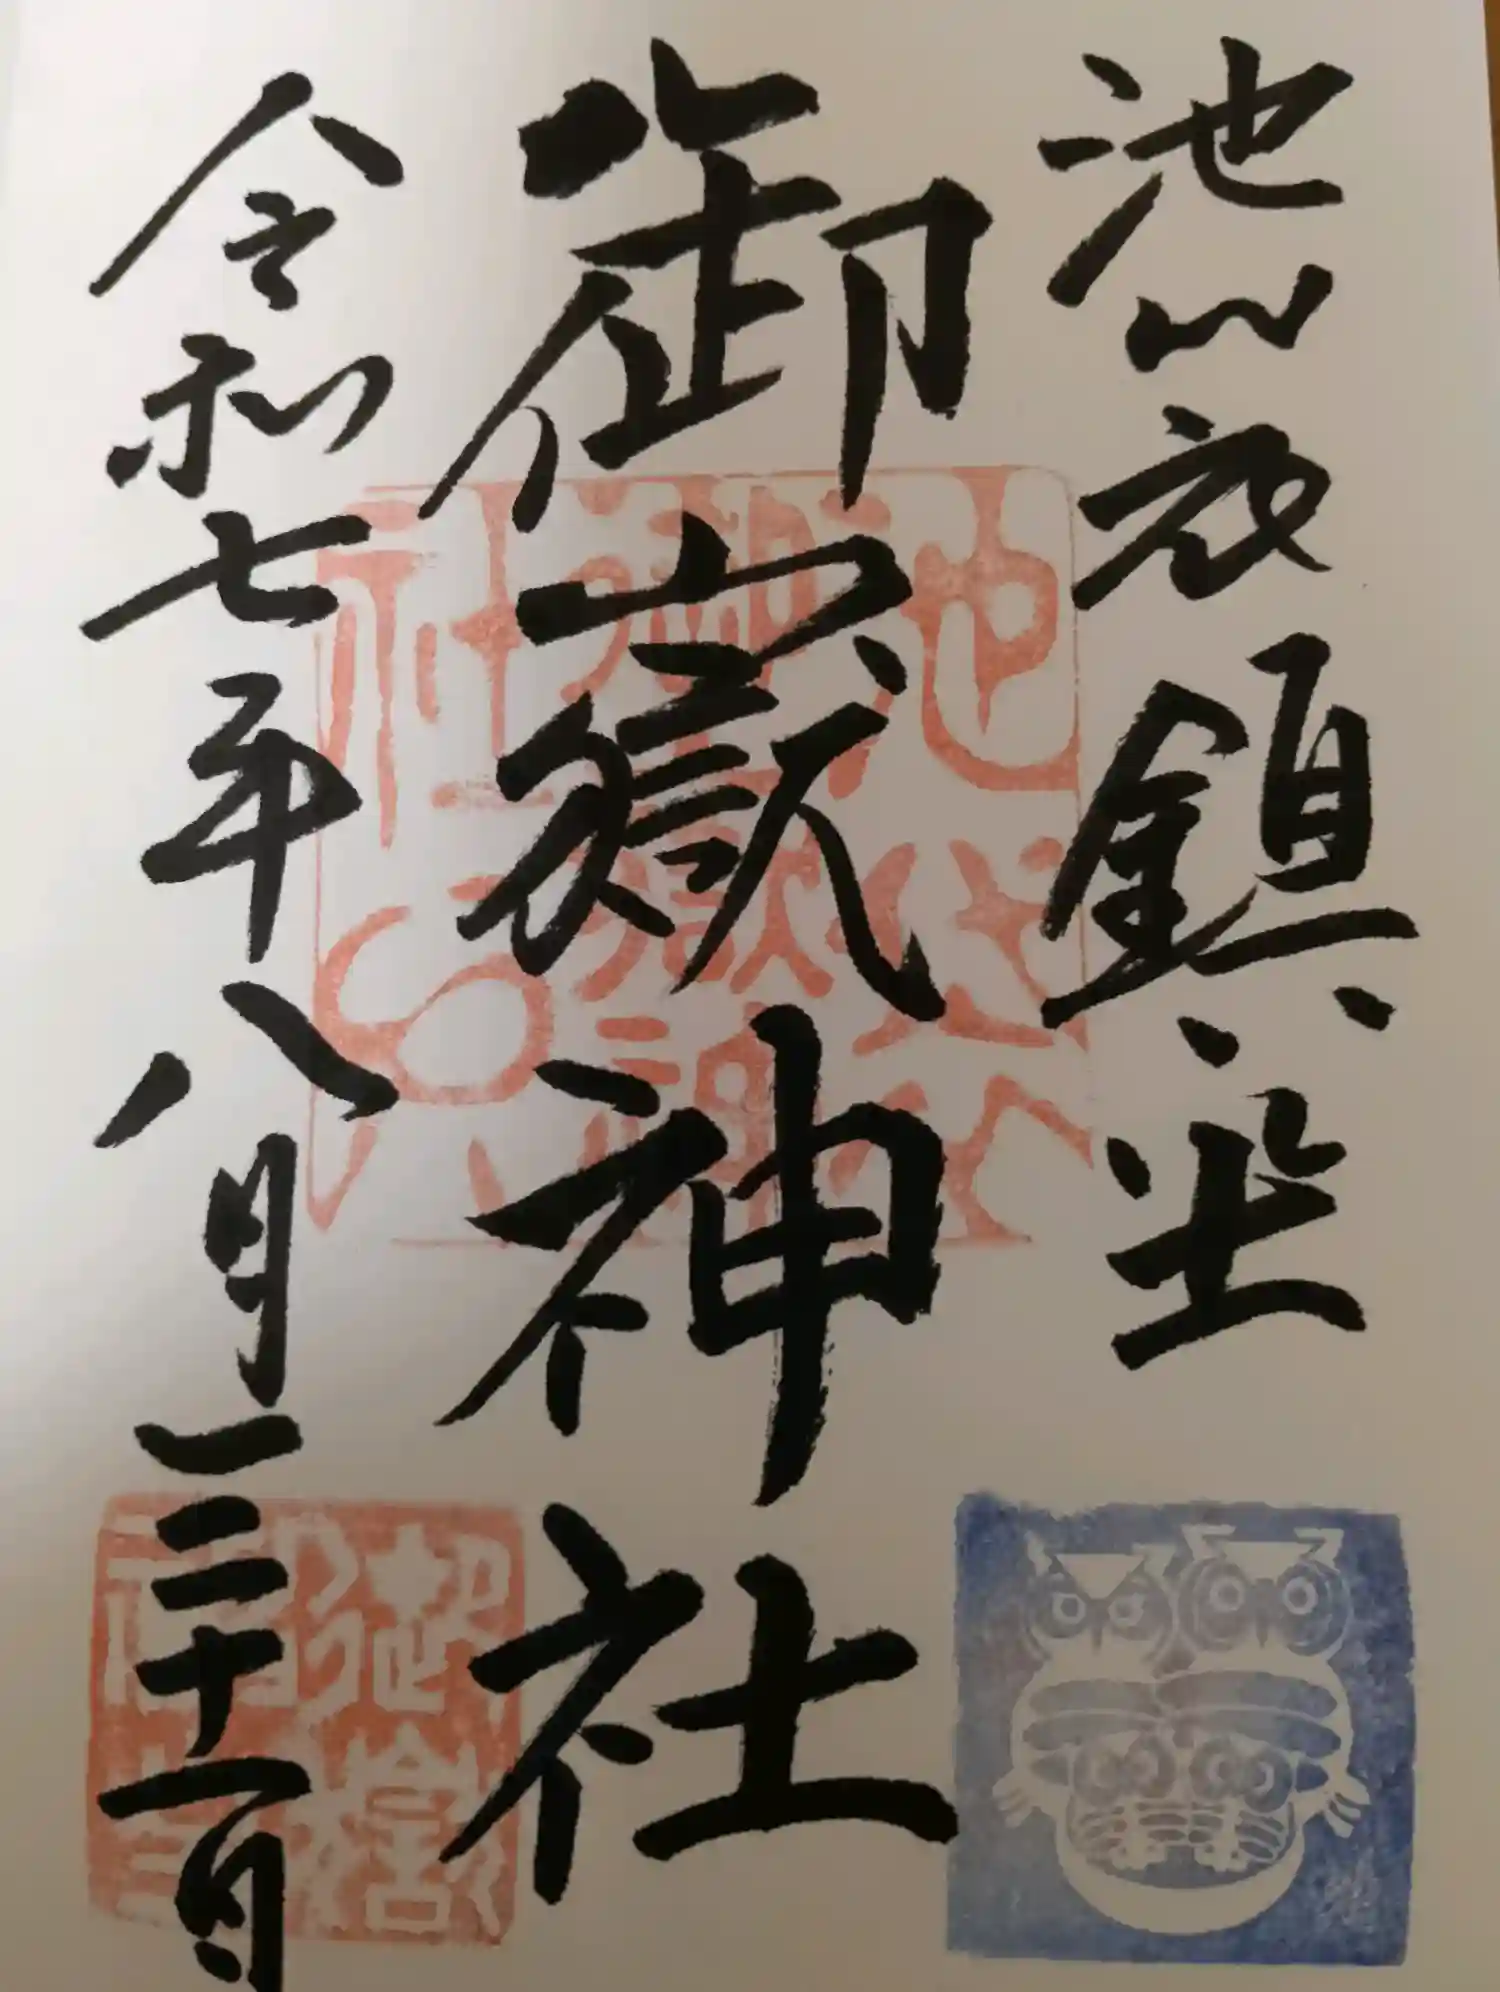 池袋鎮坐
御嶽神社
令和七年八月三十一日
池袋御嶽神社之印